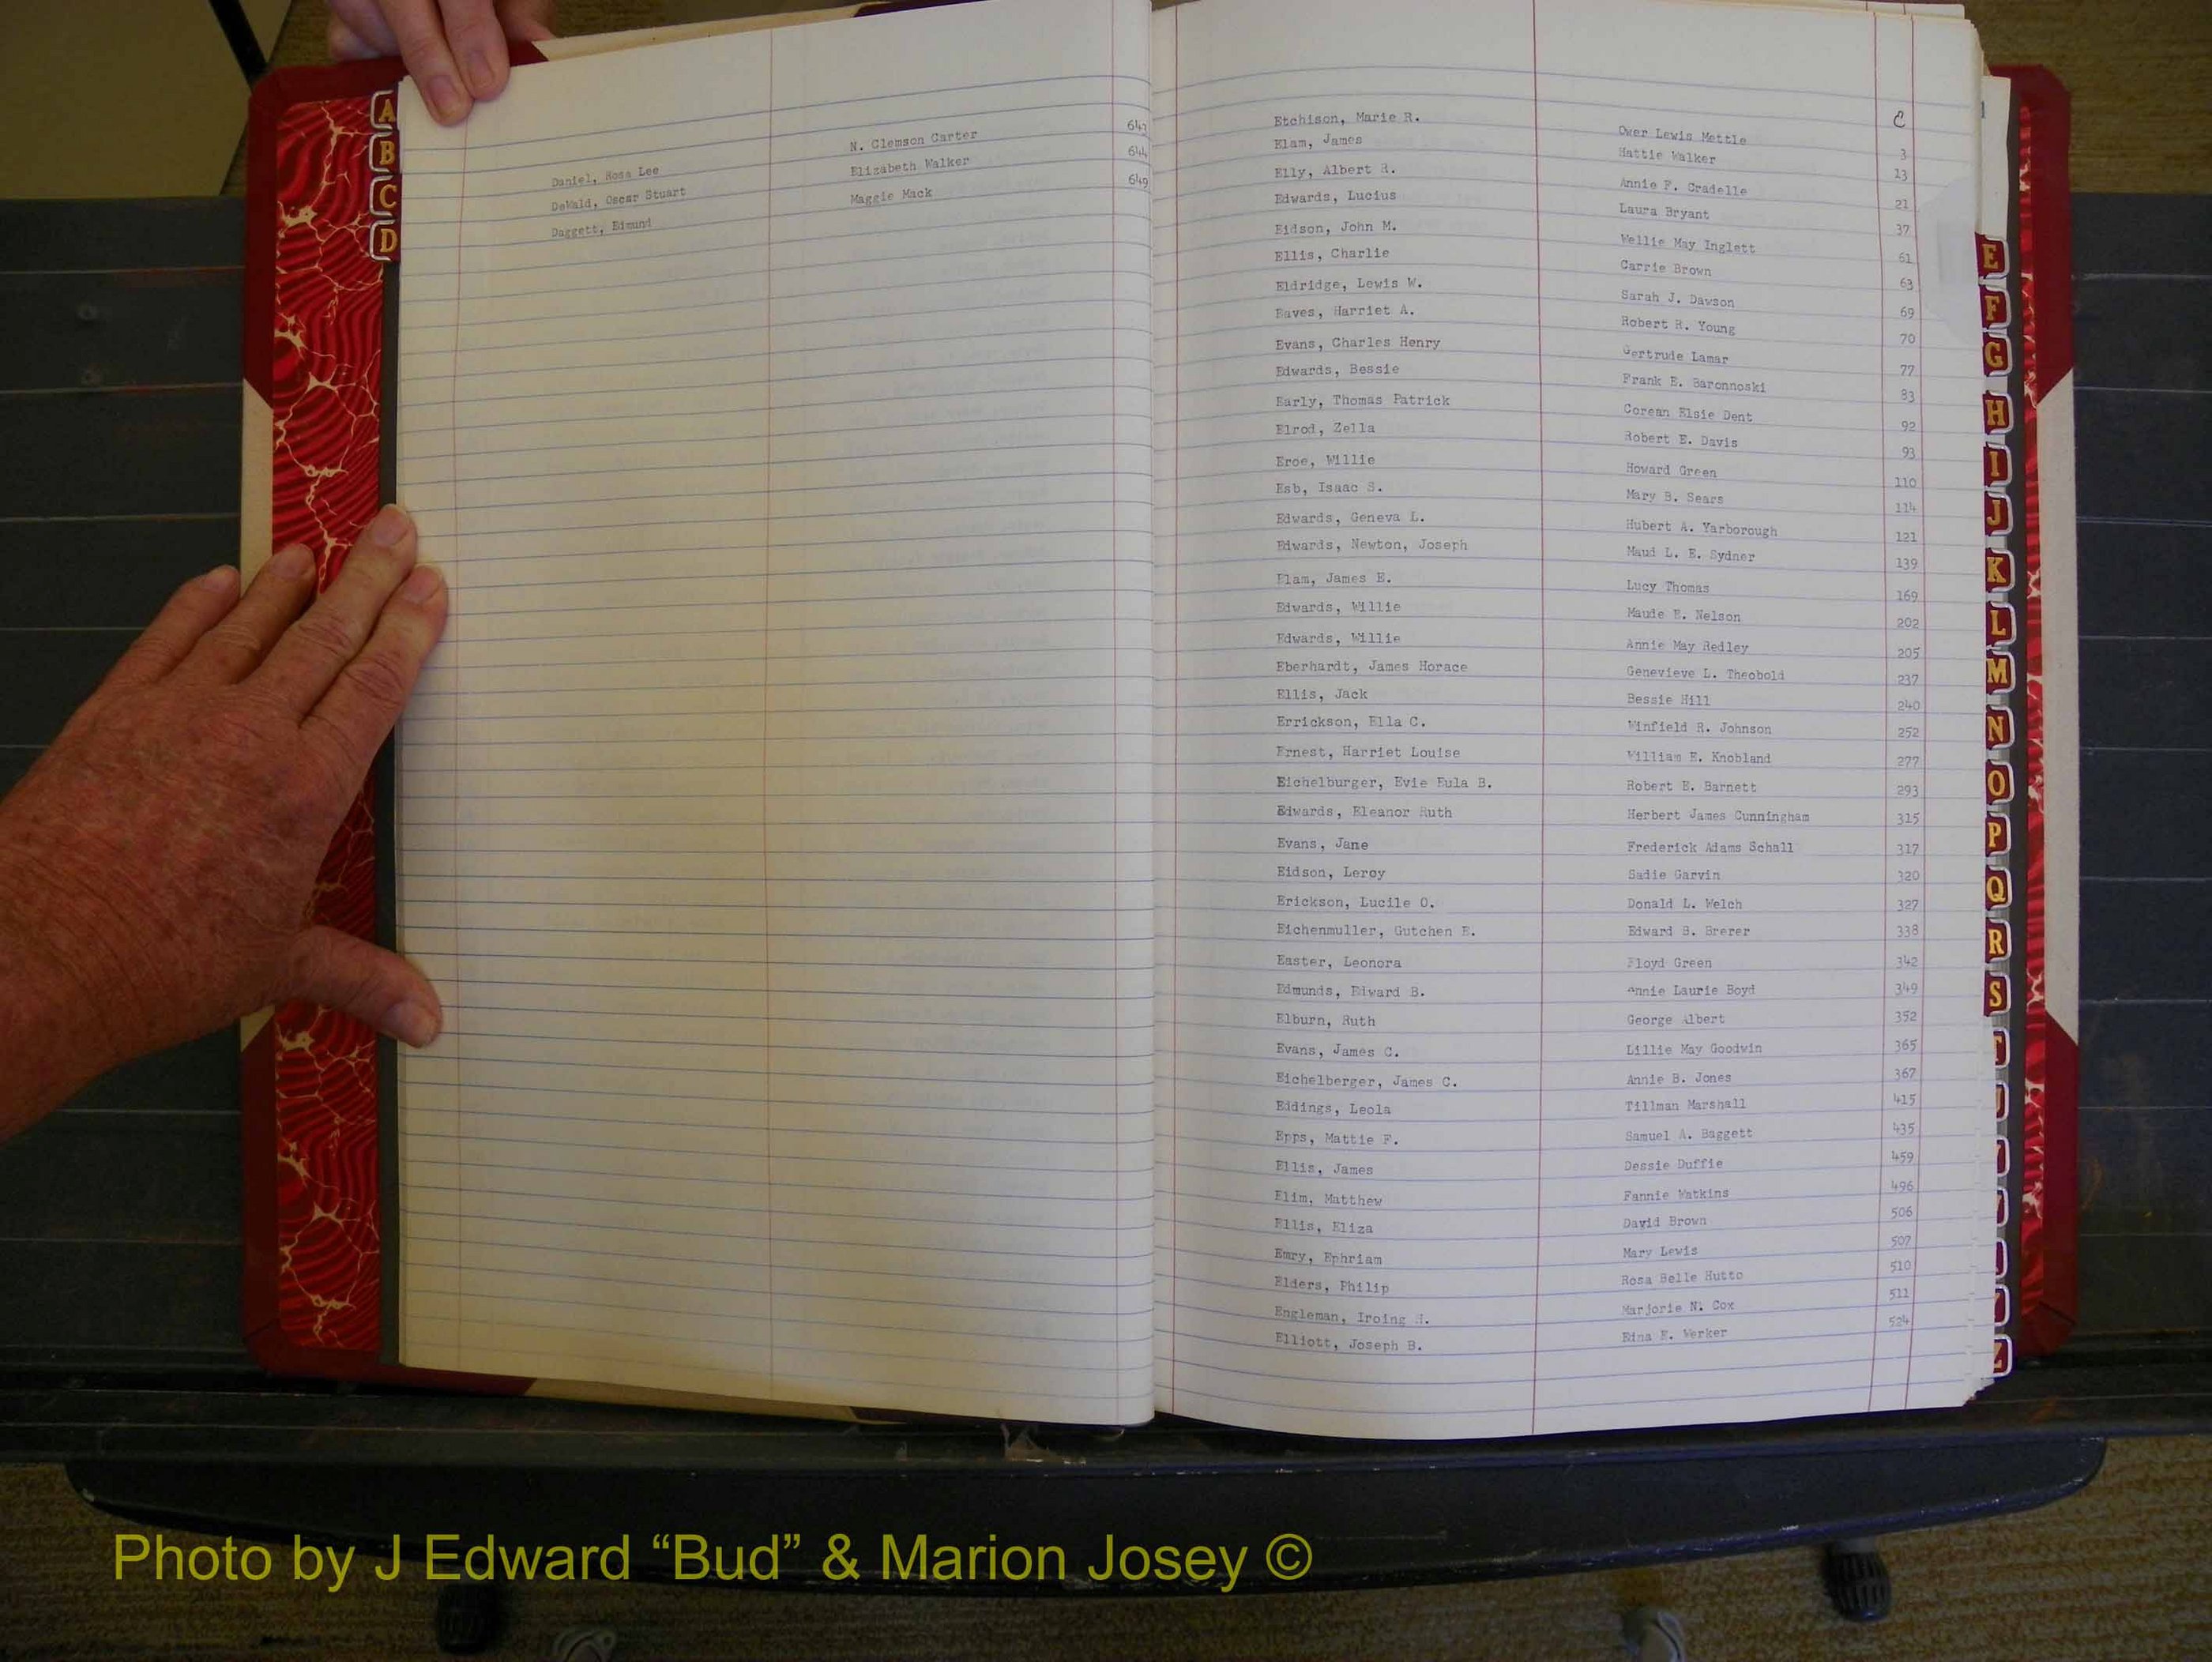 A
B
C
D
Daniel, Rosa Lee N. Clemson Carter 643
DeWald, Oscar Stuart Elizabeth Walker 644
Daggett, Edmund Maggie Mack 649
Etchison, Marie R. Ower Lewis Mettle
Elam, James Hattie Walker 3
Elly, Albert R. Annie F. Cradelle 13
Edwards, Lucius Laura Bryant 21
Eidson, John M. Wellie May Inglett 37
Ellis, Charlie Carrie Brown 61
Eldridge, Lewis W. Sarah J. Dawson 63
Eaves, Harriet A. Robert R. Young 69
Evans, Charles Henry Gertrude Lamar 70
Edwards, Bessie Frank E. Baronnoski 77
Early, Thomas Patrick Corean Elsie Dent 83
Elrod, Zella Robert E. Davis 92
Eroe, Willie Howard Green 93
Esb, Isaac S. Mary B. Sears 110
Edwards, Geneva L. Hubert A. Yarborough 114
Edwards, Newton, Joseph Maud L. E. Sydner 121
Elam, James E. Lucy Thomas 139
Edwards, Willie Maude E. Nelson 169
Edwards, Willie Annie May Redley 202
Eberhardt, James Horace Genevieve L. Theobold 205
Ellis, Jack Bessie Hill 237
Errickson, Ella C. Winfield R. Johnson 240
Ernest, Harriet Louise William E. Knobland 252
Eichelburger, Evie Eula B. Robert E. Barnett 277
Edwards, Eleanor Ruth Herbert James Cunningham 293
Evans, Jane Frederick Adams Schall 315
Eidson, Leroy Sadie Garvin 317
Erickson, Lucile O. Donald L. Welch 320
Eichenmuller, Gutchen E. Edward S. Brerer 327
Easter, Leonora Floyd Green 338
Edmunds, Edward B. Annie Laurie Boyd 342
Elburn, Ruth George Albert 349
Evans, James C. Lillie May Goodwin 352
Eichelberger, James C. Annie B. Jones 365
Eddings, Leola Tillman Marshall 367
Epps, Mattie F. Samuel A. Baggett 415
Ellis, James Dessie Duffie 435
Elim, Matthew Fannie Watkins 459
Ellis, Eliza David Brown 496
Emry, Ephriam Mary Lewis 506
Elders, Philip Rosa Belle Hutto 507
Engleman, Iroing H. Marjorie N. Cox 510
Elliott, Joseph B. Edna E. Werker 511
524
E
F
G
H
I
J
K
L
M
N
O
P
Q
R
S
T
Z
Photo by J Edward “Bud” & Marion Josey ©